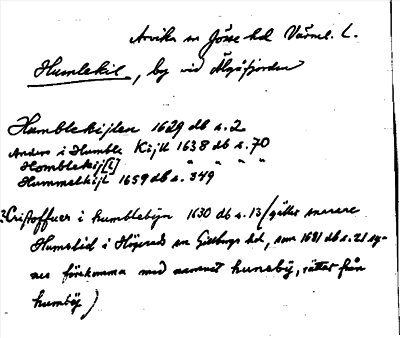 Arvika sn Jösse hd Värml. L.
Humlekil, by vid Älgåfjorden
Humblekijlen 1629 db s. 2
Anders i Humble Kijll 1638 db s. 70
Homblekij[l] " " " "
Hummelkijl 1659 db s. 349
?Cristoffuer i humblebijn 1630 db s. 13 (gäller snarare
Humstid i Högeruds sn Gillbergs hd, som 1681 db s. 21 sy-
nes förekomma med namnet hunsbÿ, rättat från
humbÿ)